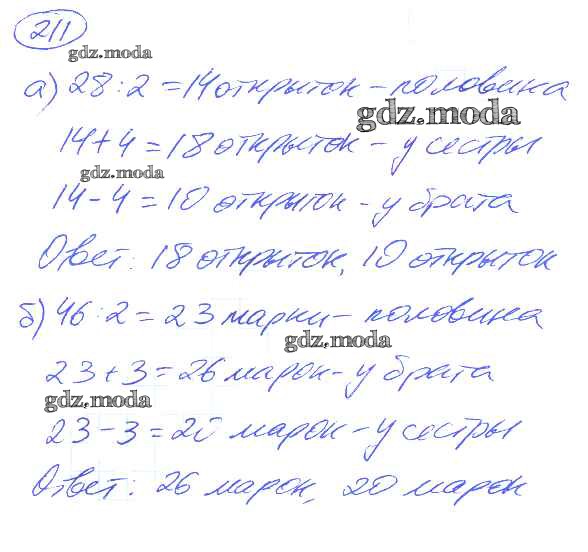 211
gdz.moda
а) 28 : 2 = 14 открыток – половина
gdz.moda
14 + 4 = 18 открыток – у сестры
gdz.moda
14 – 4 = 10 открыток – у брата
Ответ: 18 открыток, 10 открыток
б) 46 : 2 = 23 марки – половина
gdz.moda
23 + 3 = 26 марок – у брата
gdz.moda
23 – 3 = 20 марок – у сестры
Ответ: 26 марок, 20 марок